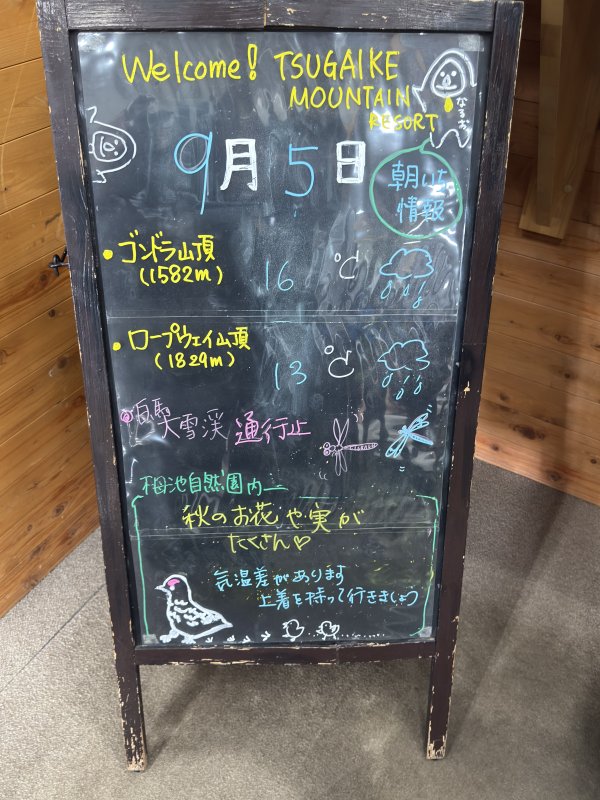 Welcome! TSUGAIKE
MOUNTAIN
RESORT
なるお
9月5日
朝いち
情報
●ゴンドラ山頂
(1582m) 16 ℃
●ロープウェイ山頂
(1829m) 13 ℃
白馬大雪渓 通行止
栂池自然園内
秋のお花や実が
たくさん♡
気温差があります
上着を持って行きましょう